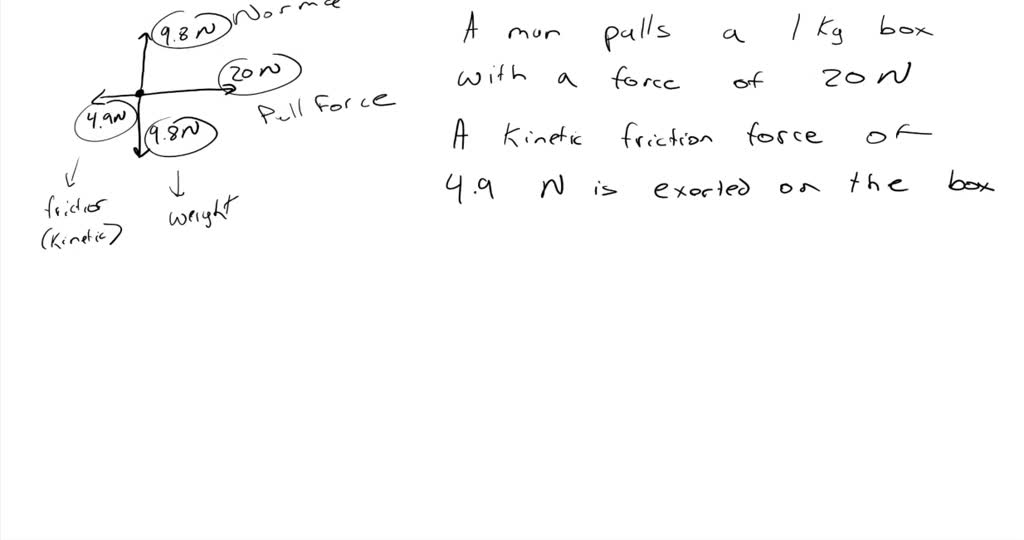 9.8 N
20 N
Pull Force
4.9N
9.8N
friction
(Kinetic)
weight
A man pulls a 1 Kg box
with a force of 20 N
A Kinetic friction force of
4.9 N is exerted on the box